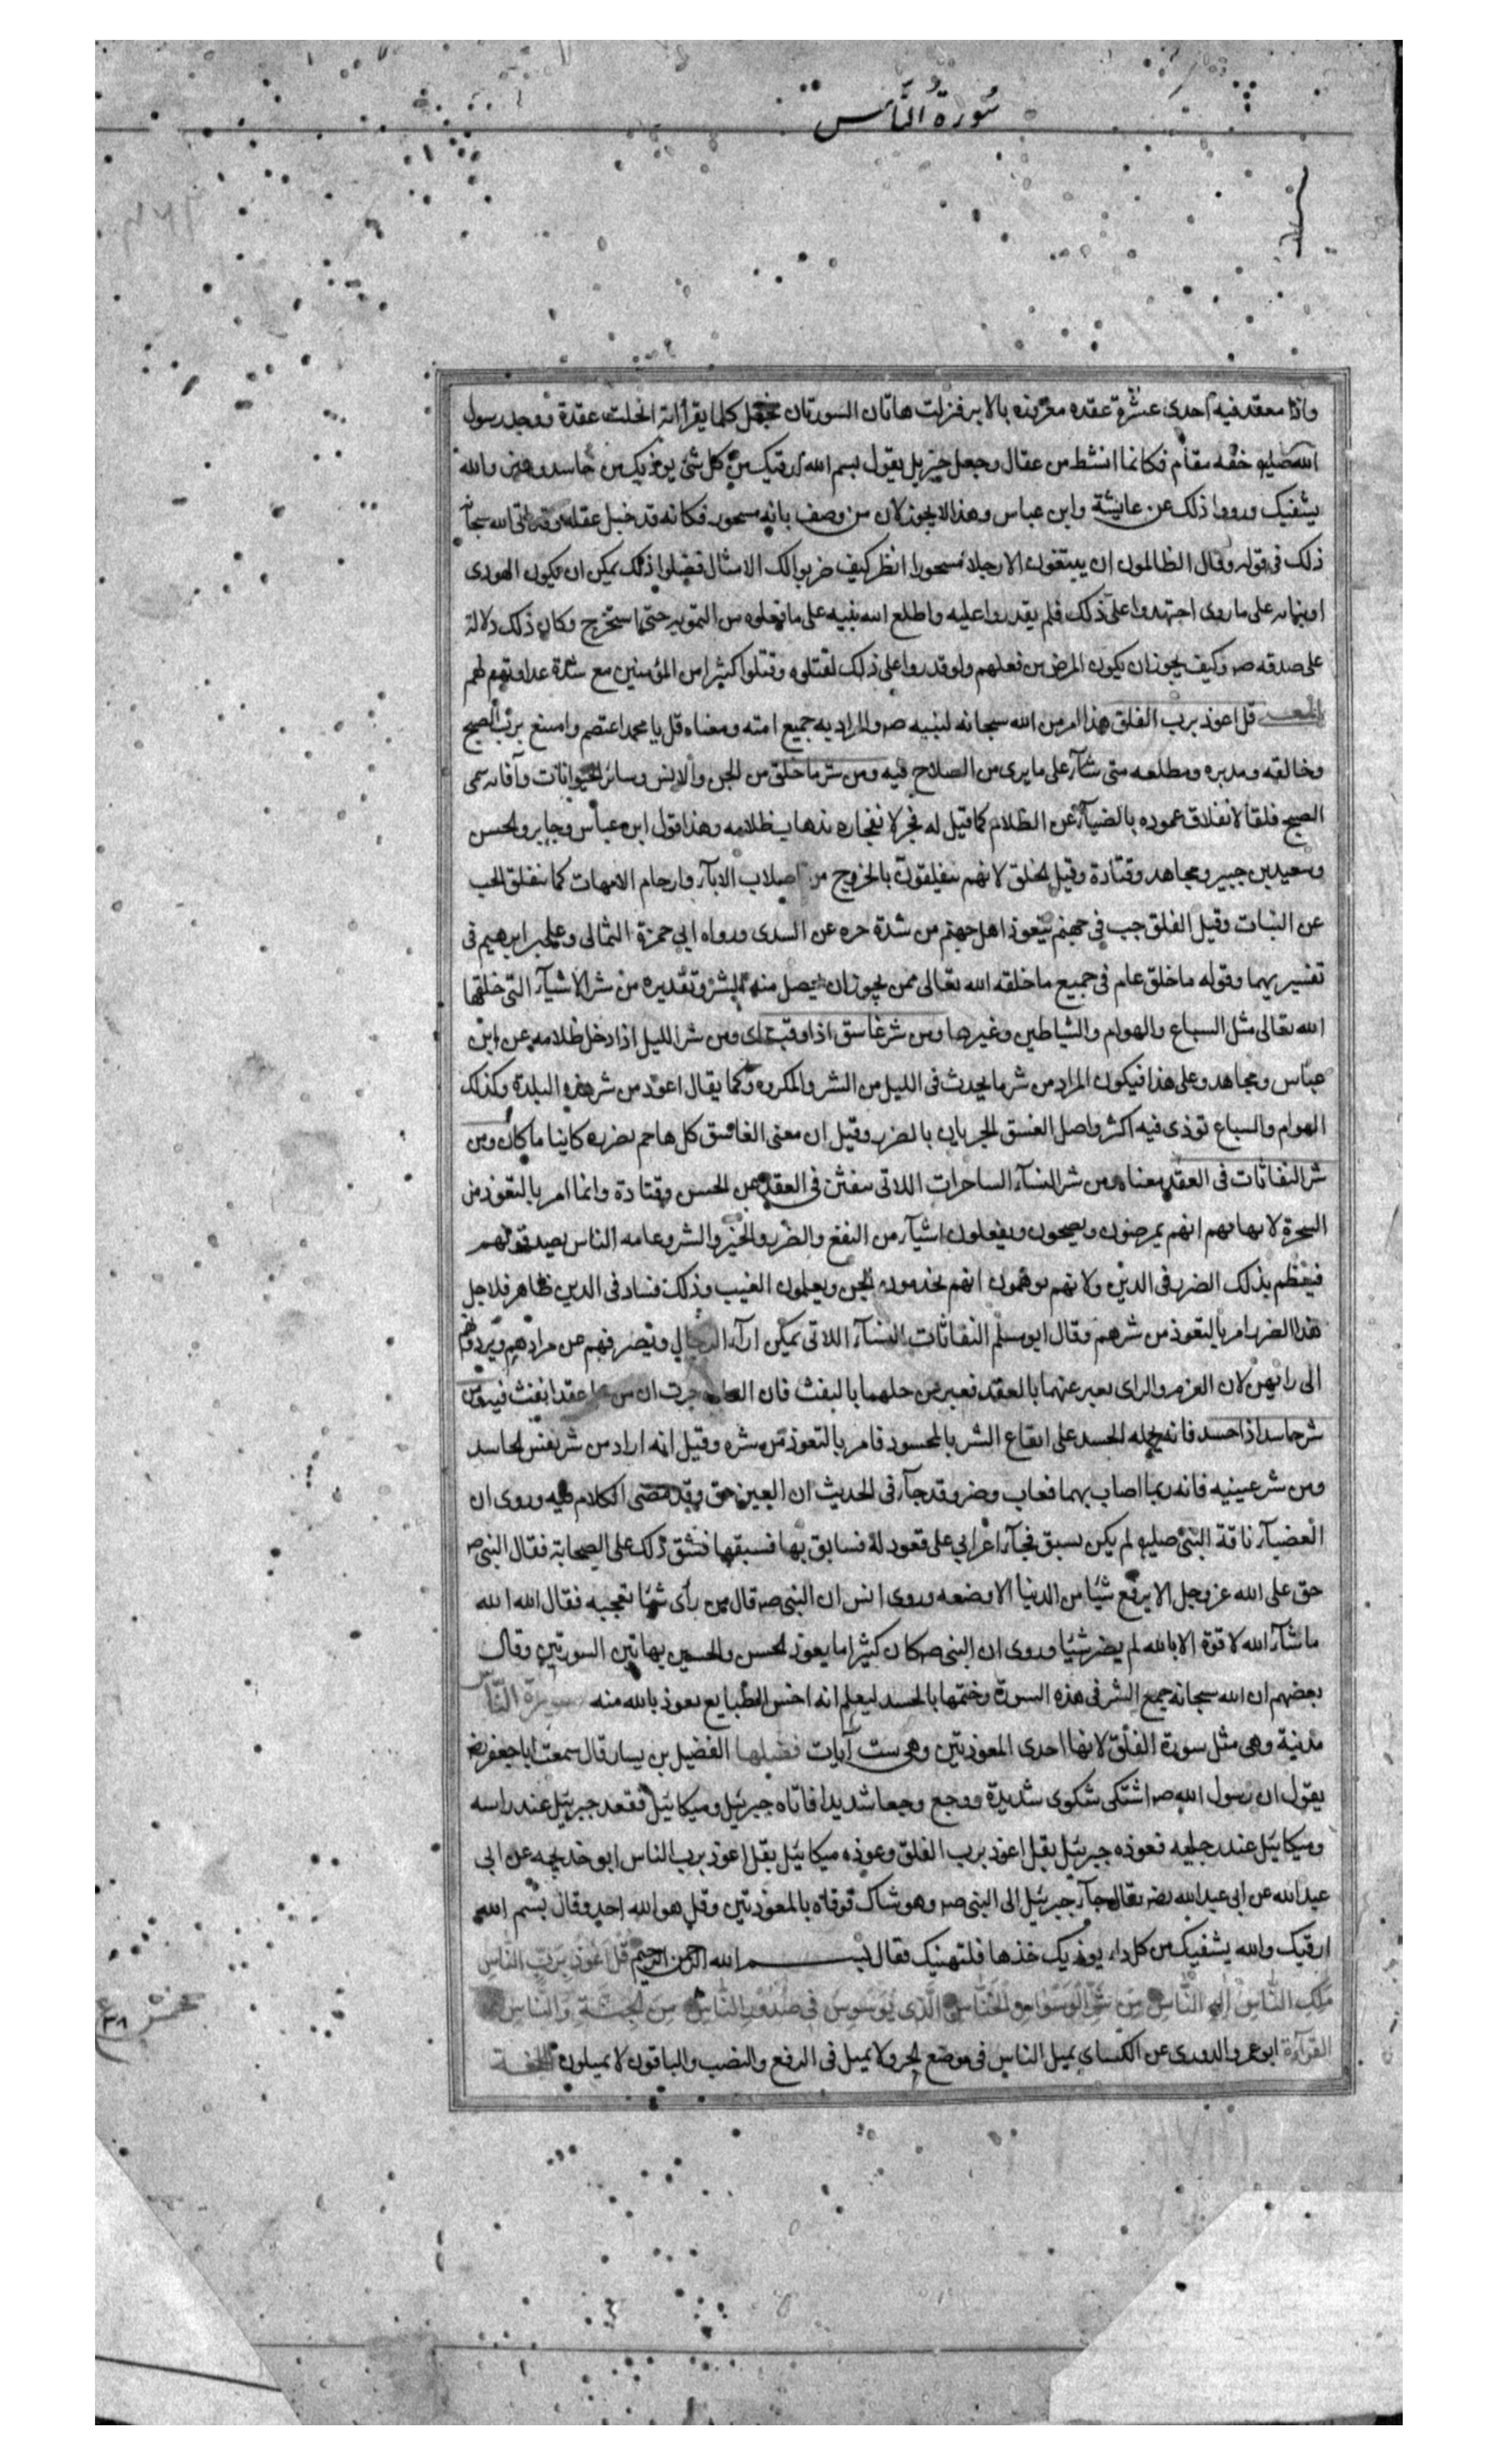 سُورَةُ النَّاس
واذا معقد فيه احدى عشرة عقده مغروزه بالابر فنزلت هاتان السورتان فجعل كلما يقرأ اية انحلت عقدة ووجد رسول
الله صليه خفه مقام فكانما انشط من عقال وجعل جبريل يقول بسم الله ارقيك من كل شئ يوذيك من حاسد وعين والله
يشفيك ورووا ذلك عن عايشة وابن عباس وهذا لايجوز لان من وصف بانه مسحور فكانه قد خبل عقله وقد ابى الله سبحانه
ذلك فى قوله وقال الظالمون ان يتبعون الا رجلا مسحورا انظر كيف ضربوا لك الامثال فضلوا ذلك يمكن ان يكون اليهودى
او بناته على ما روى اجتهدوا على ذلك فلم يقدروا عليه واطلع الله نبيه على ما فعلوه من التمويه حتى استخرج وكان ذلك دلالة
على صدقه صه وكيف يجوز ان يكون المرض من فعلهم ولو قدروا على ذلك لقتلوه وقتلوا كثيرا من المؤمنين مع شدة عداوتهم لهم
قل اعوذ برب الفلق هذا امر من الله سبحانه لنبيه صه والمراد به جميع امته ومعناه قل يا محمد اعتصم وامتنع برب الصبح
وخالقه ومدبره ومطلعه متى شآء على ما يرى من الصلاح فيه ومن شر ما خلق من الجن والانس وساير الحيوانات وآفاته سمى
الصبح فلقا لانفلاق عموده بالضيآء عن الظلام كما قيل له فجر لانفجاره بذهاب ظلامه وهذا قول ابن عباس وجابر والحسن
وسعيد بن جبير ومجاهد وقتادة وقيل الخلق لانهم ينفلقون بالخروج من اصلاب الابآء وارحام الامهات كما ينفلق الحب
عن النبات وقيل الفلق جب فى جهنم يتعوذ اهل جهنم من شدة حره عن السدى ورواه ابي حمزة الثمالى وعلى بن ابرهيم فى
تفسيريهما وقوله ما خلق عام فى جميع ما خلقه الله تعالى ممن يجوز ان يحصل منه الشر وتقديره من شر الاشيآء التى خلقها
الله تعالى مثل السباع والهوام والشياطين وغيرها ومن شر غاسق اذا وقب اى ومن شر الليل اذا دخل ظلامه عن ابن
عباس ومجاهد وعلى هذا فيكون المراد من شر ما يحدث فى الليل من الشر والمكروه كما يقال اعوذ من شر هذه البلدة وكذلك
الهوام والسباع توذى فيه اكثر واصل الغسق الجريان بالضرر وقيل ان معنى الغاسق كل هاجم بضرره كاينا ما كان ومن
شر النفاثات فى العقد معناه ومن شر النسآء الساحرات اللاتى ينفثن فى العقد عن الحسن وقتادة وانما امر بالتعوذ من
السحرة لايهامهم انهم يمرضون ويصحون ويفعلون اشيآء من النفع والضر والخير والشر وعامه الناس يصدقونهم
فيعظم بذلك الضرر فى الدين ولانهم يوهمون انهم يخدمون الجن ويعلمون الغيب وذلك فساد فى الدين ظاهر فلاجل
هذا الضرر امر بالتعوذ من شرهم وقال ابو مسلم النفاثات النسآء اللاتى يملكن ارآء الرجال ويصرفهم عن مرادهم ويردونهم
الى رايهن لان العزم والراى يعبر عنهما بالعقد فعبر عن حلهما بالنفث فان العادة جرت ان من عقدا نفث فيه ومن
شر حاسد اذا حسد فانه يحمله الحسد على ايقاع الشر بالمحسود فامر بالتعوذ من شره وقيل انه اراد من شر نفس الحاسد
ومن شر عينيه فانه ربما اصاب بهما فعاب وضر وقد جآء فى الحديث ان العين حق وقد مضى الكلام فيه وروى ان
العضبآء ناقة النبى صليه لم يكن تسبق فجآء اعرابي على قعود له فسابق بها فسبقها فشق ذلك على الصحابة فقال النبى صه
حق على الله عز وجل الا يرفع شيئا من الدنيا الا وضعه وروى انس ان النبى صه قال من رأى شيئا يعجبه فقال الله الله
ما شآء الله لا قوة الا بالله لم يضر شيئا وروى ان النبى صه كان كثيرا ما يعوذ الحسن والحسين بهاتين السورتين وقال
بعضهم ان الله سبحانه جمع الشر فى هذه السورة وختمها بالحسد ليعلم انه اخس الطبايع نعوذ بالله منه سورة الناس
مدنية وهى مثل سورة الفلق لانها احدى المعوذتين وهى ست آيات فضلها الفضيل بن يسار قال سمعت ابا جعفر
يقول ان رسول الله صه اشتكى شكوى شديدة ووجع وجعا شديدا فاتاه جبرئيل وميكائيل فقعد جبرئيل عند راسه
وميكائيل عند رجليه فعوذه جبرئيل بقل اعوذ برب الفلق وعوذه ميكائيل بقل اعوذ برب الناس ابو خديجه عن ابى
عبد الله عن ابى عبد الله قال جآء جبرئيل الى النبى صه وهو شاك فرقاه بالمعوذتين وقل هو الله احد وقال بسم الله
ارقيك والله يشفيك من كل داء يوذيك خذها فلتهنيك فقال بسم الله الرحمن الرحيم قل اعوذ برب الناس
ملك الناس اله الناس من شر الوسواس الخناس الذى يوسوس فى صدور الناس من الجنة والناس
القرآءة ابو عمرو الدورى عن الكسائ يميل الناس فى موضع الجر ولا يميل فى الرفع والنصب والباقون لا يميلون